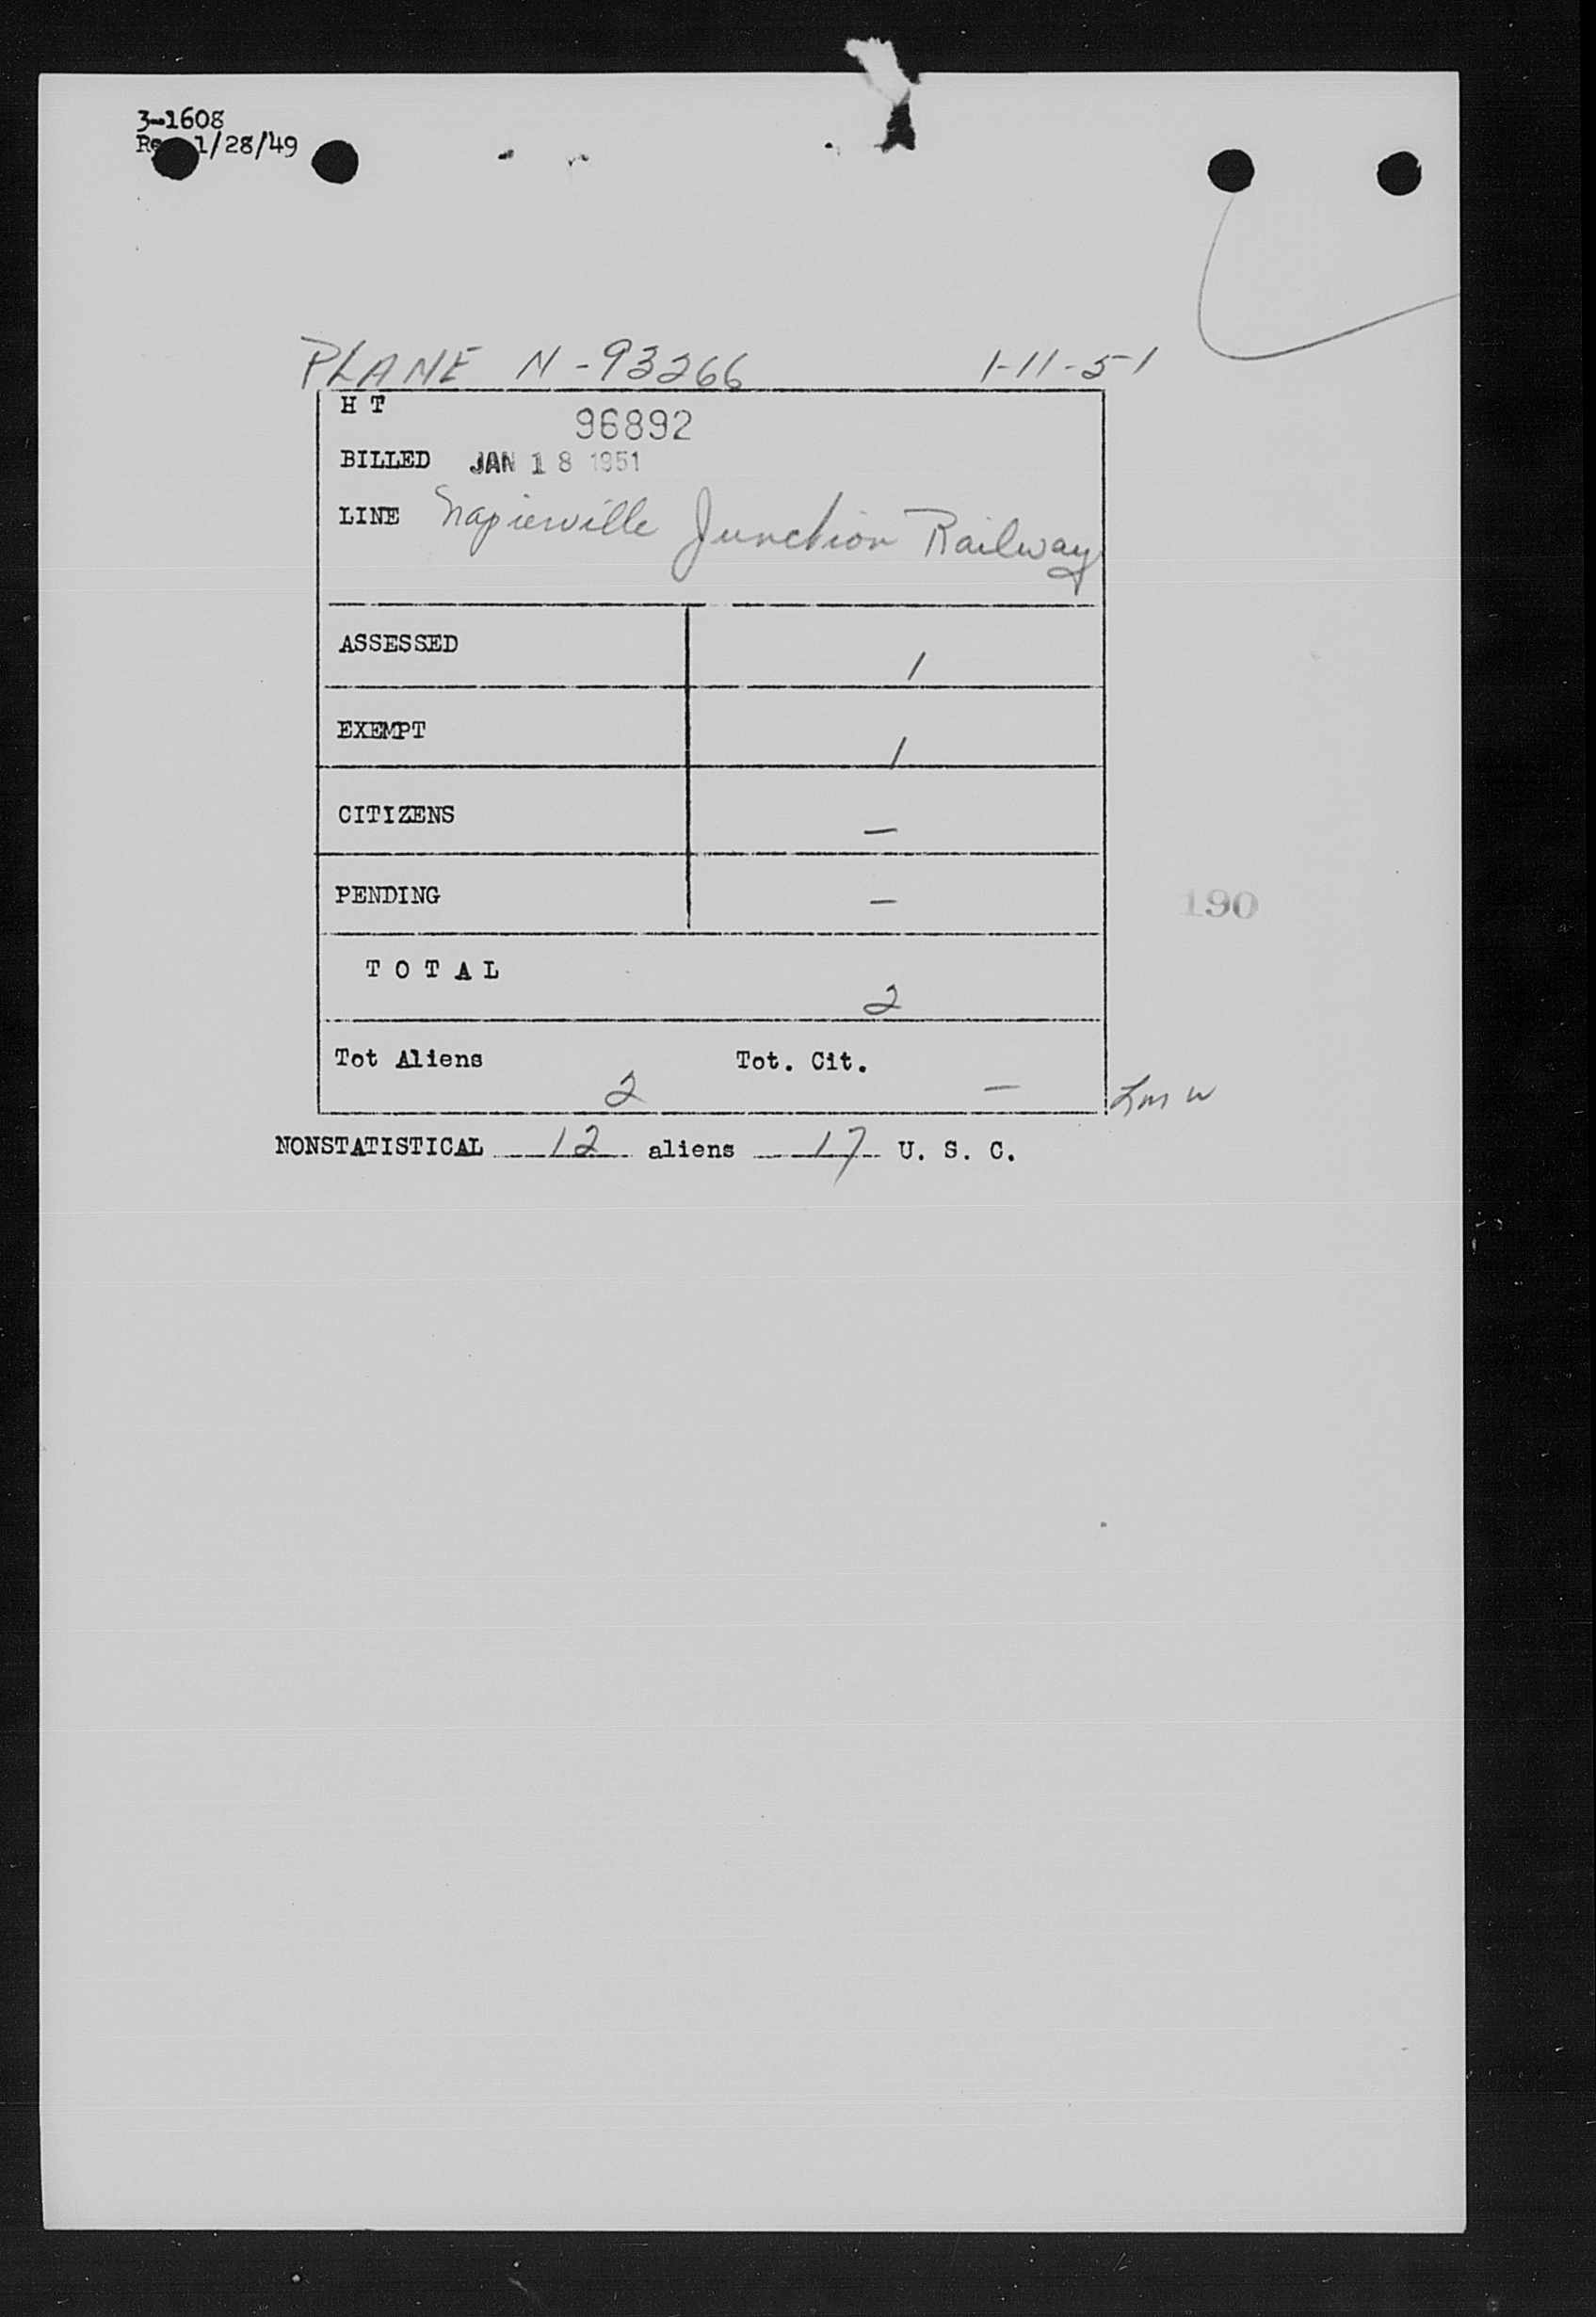 3-1608
1/28/49
PLANE N-93266 1-11-51
H T
96892
BILLED JAN 18 1951
LINE Napierville Junction Railway
ASSESSED 1
EXEMPT 1
CITIZENS —
PENDING —
190
T O T A L 2
Tot Aliens 2 Tot. Cit. —
NONSTATISTICAL 12 aliens 17 U. S. C.